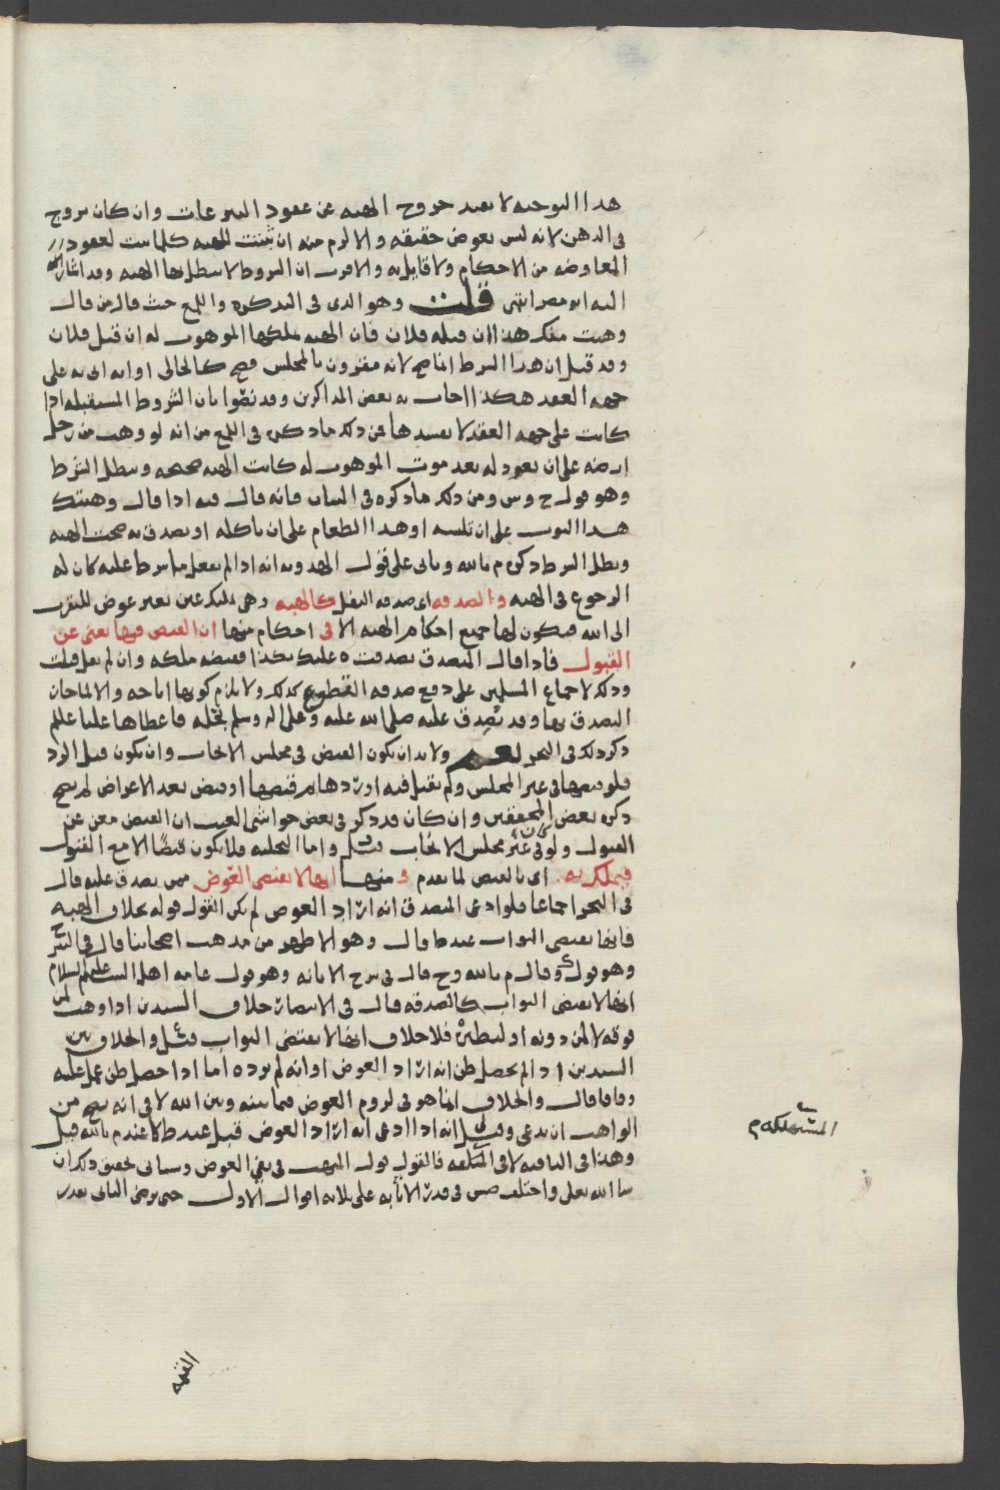 هذا التوجيه لا يفيد خروج الهبه عن عقود التبرعات وان كان يروج
فى الذهن لانه ليس بعوض حقيقه والا لزم منه ان يثبت للهبه كلما يثبت لعقود
المعاوضه من الاحكام ولا قايل به والاقرب ان الشروط لا تبطل بها الهبه وقد اشار
اليه ابو مضر انتهى قلت وهو الذى فى التذكره واللمع حيث قال من قال
وهبت منك هذا ان قبله فلان فان الهبه يملكها الموهوب له ان قبل فلان
وقد قيل ان هذا الشرط انما صح لانه مقرون بالمجلس فصح كالحالى او انه اتى به على
جهه العقد هكذا اجاب به بعض المذاكرين وقد نصوا بان الشروط المستقبله اذا
كانت على جهه العقد لا تفسدها فمن ذلك ما ذكره فى اللمع من انه لو وهب من رجل
ارضه على ان يعود له بعد موت الموهوب له كانت الهبه صحيحه وبطل الشرط
وهو قول ح وش ومن ذلك ما ذكره فى البيان فانه قال فيه اذا قال وهبتك
هذا الثوب على ان تلبسه او هذا الطعام على ان تاكله او تصدق به صحت الهبه
وبطل الشرط ذكره م بالله وياتى على قول الهدويه انه اذا لم يفعل ما شرط عليه كان له
الرجوع فى الهبه والصدقه اى صدقه النفل كالهبه وهى تمليك عين بغير عوض للتقرب
الى الله فيكون لها جميع احكام الهبه الا فى احكام منها ان القبض فيها يغنى عن
القبول فاذا قال المتصدق تصدقت عليك بكذا فقبضه ملكه وان لم يقل قبلت
وذلك لاجماع المسلمين على دفع صدقه التطوع كذلك ولا يلزم كونها اباحه والا لما جاز
التصدق بها وقد تصدق عليه صلى الله عليه وعلى اله وسلم بنخله فاعطاها عليا عللم
ذكر ذلك فى البحر نعم ولا بد ان يكون القبض فى مجلس الايجاب وان يكون قبل الرد
فلو قبضها فى غير المجلس ولم يقبل فيه او ردها ثم قبضها او قبض بعد الاعراض لم يصح
ذكره بعض المحققين وان كان قد ذكر فى بعض حواشى الغيث ان القبض مغن عن
القبول ولو فى غير مجلس الايجاب قيل واما التخليه فلا تكون قبضا الا مع القبول
فيملك به اى بالقبض لما تقدم و منها انها لا تقتضى العوض ممن تصدق عليه قال
فى البحر اجماعا فلو ادعى المتصدق انه اراد العوض لم يكن القول قوله بخلاف الهبه
فانها تقتضى الثواب عندط قال وهو الاظهر من مذهب اصحابنا قال فى الشرح
وهو قول ك وقال م بالله وح قال فى شرح الابانه وهو قول عامه اهل البيت عليهم السلام
انها لا تقتضى الثواب كالصدقه قال فى الانتصار خلاف السيدين اذا وهب لمن
فوقه لا لمن دونه او لنظيره فلا خلاف انها لا تقتضى الثواب قيل والخلاف بين
السيدين اذا لم يحصل ظن انه اراد العوض او انه لم يرده اما اذا حصل ظن عمل عليه
وفاقا قال والخلاف انما هو فى لزوم العوض فيما بينه وبين الله لا فى انه يصح من
الواهب ان يدعى وقيل انه اذا ادعى انه اراد العوض قبل عند ط لا عند م بالله قيل
وهذا فى الباقيه لا فى التالفه فالقول قول المتهب فى نفى العوض وسياتى تحقيق ذلك ان
شا الله تعلى واختلف فى قدر الاثابه على ثلاثه اقوال الاول حتى يرضى الثانى بقدر
القيمه